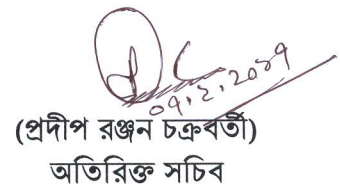 ০৭.২.২০১৭
(প্রদীপ রঞ্জন চক্রবর্তী)
অতিরিক্ত সচিব